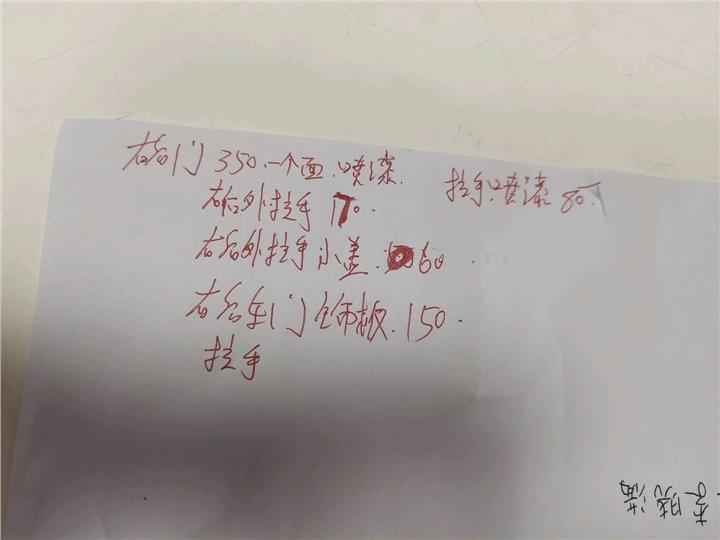 右后门 350.一个面.喷漆.
拉手喷漆 80.
右后外拉手 170.
右后外拉手小盖. 60
右后车门饰板.150.
拉手
李晓洁